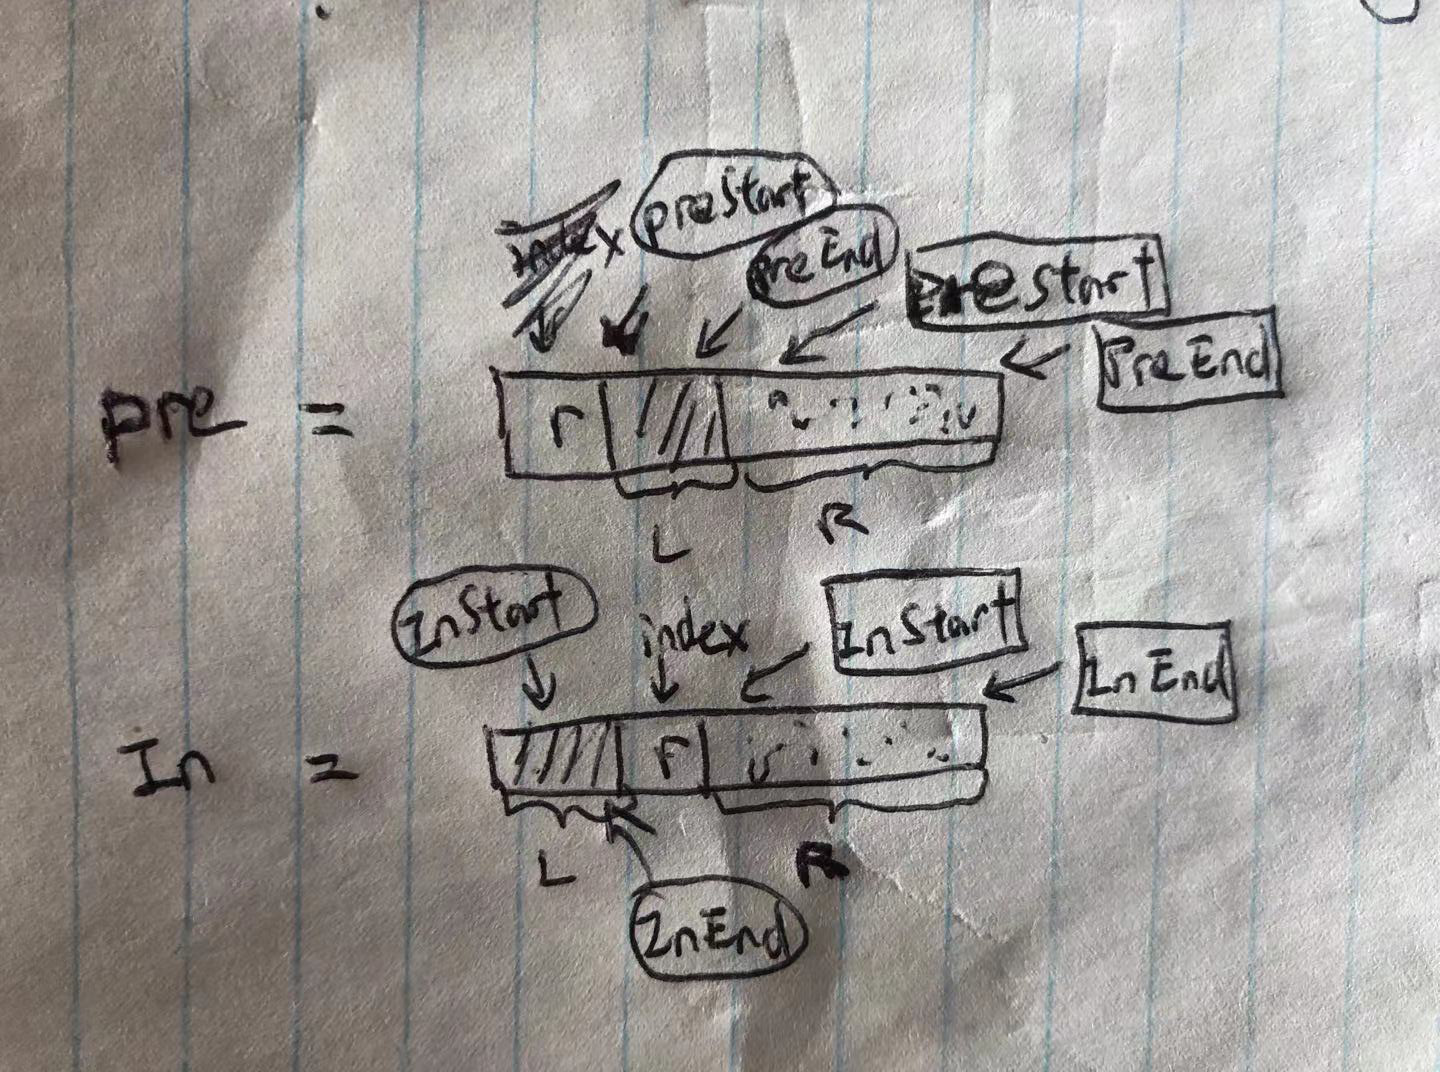 index preStart
preEnd
PreStart
PreEnd
pre = r
L R
InStart index InStart
InEnd
In = r
L R
InEnd